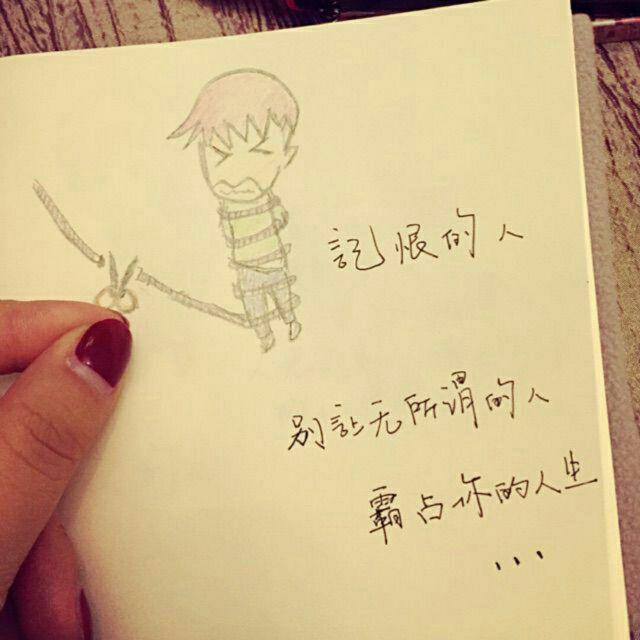 記恨的人
别让无所谓的人
霸占你的人生
...